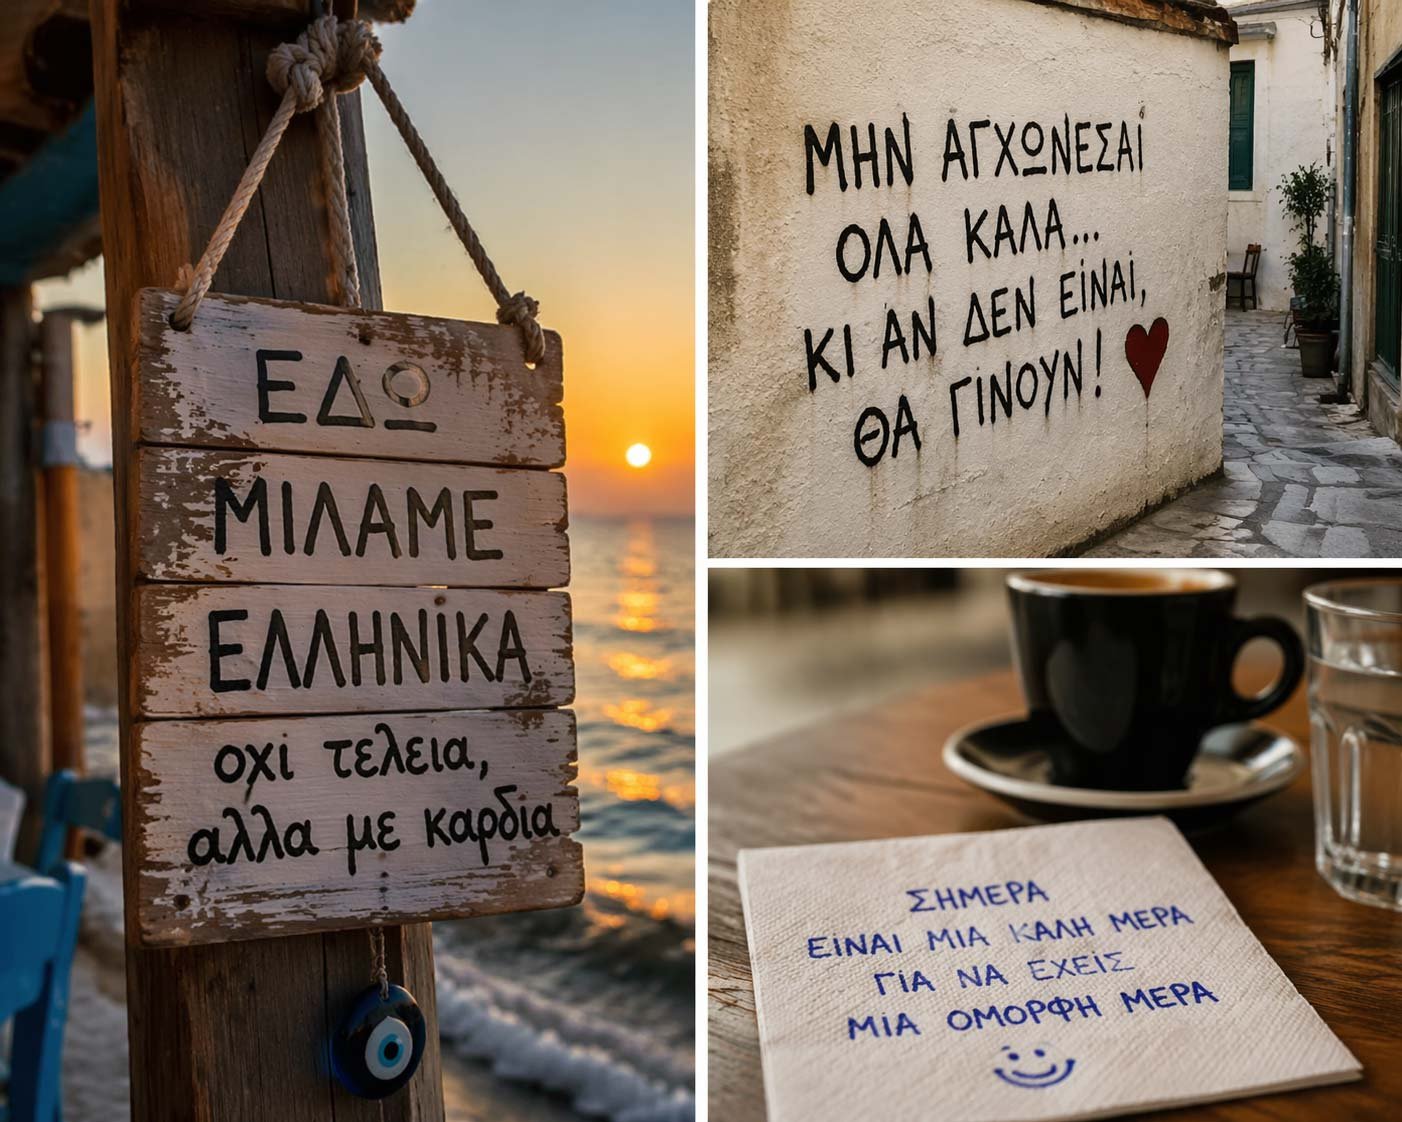 ΕΔΩ
ΜΙΛΑΜΕ
ΕΛΛΗΝΙΚΑ
οχι τελεια,
αλλα με καρδια
ΜΗΝ ΑΓΧΩΝΕΣΑΙ
ΟΛΑ ΚΑΛΑ...
ΚΙ ΑΝ ΔΕΝ ΕΙΝΑΙ,
ΘΑ ΓΙΝΟΥΝ!
ΣΗΜΕΡΑ
ΕΙΝΑΙ ΜΙΑ ΚΑΛΗ ΜΕΡΑ
ΓΙΑ ΝΑ ΕΧΕΙΣ
ΜΙΑ ΟΜΟΡΦΗ ΜΕΡΑ